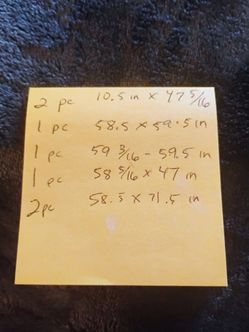 2 pc 10.5 in x 47 5/16
1 pc 58.5 x 59.5 in
1 pc 59 3/16 - 59.5 in
1 pc 58 5/16 x 47 in
2 pc 58.5 x 71.5 in